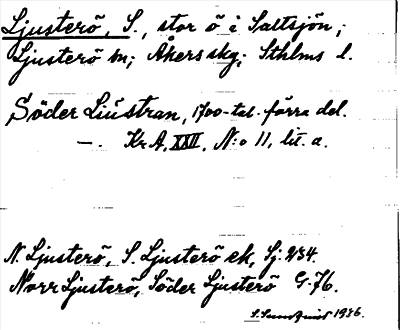 Ljusterö, S., stor ö i Saltsjön;
Ljusterö sn; Åkers skg; Sthlms l.
Söder Liustran, 1700-tal. förra del.
—. Kr. A, XXII, N:o 11, lit. a.
N. Ljusterö, S. Ljusterö ek, Sj. 234.
Norr Ljusterö, Söder Ljusterö G. 76.
1926.